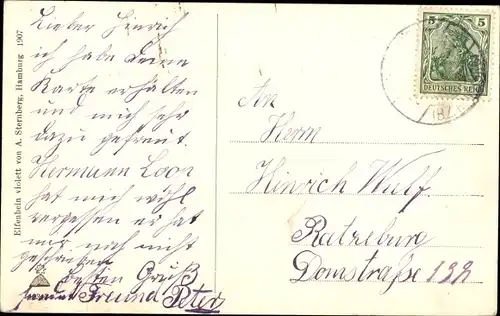 Lieber Hinrich
ich habe deine
Karte erhalten
und mich sehr
dazu gefreut.
Hermann Loor
hat mich wohl
vergessen er hat
mir noch nicht
geschrieben
Besten Gruß
Freund Peter
Elfenbein violett von A. Sternberg, Hamburg 1907
5 5
DEUTSCHES REICH
An
Herrn
Hinrich Wulf
Ratzeburg
Domstraße 13